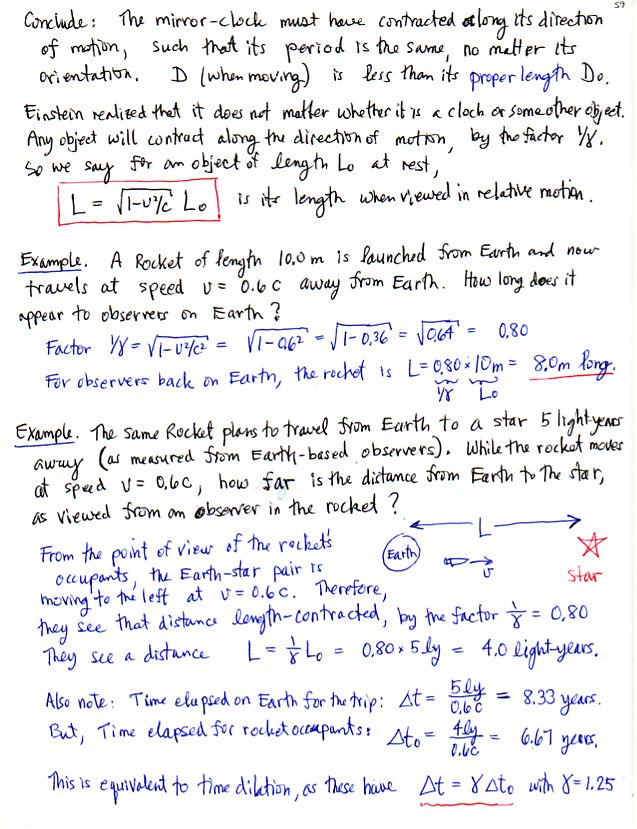 59
Conclude: The mirror-clock must have contracted along its direction
of motion, such that its period is the same, no matter its
orientation. D (when moving) is less than its proper length D₀.
Einstein realized that it does not matter whether it is a clock or some other object.
Any object will contract along the direction of motion, by the factor 1/γ.
So we say for an object of length L₀ at rest,
L = √(1-v²/c) L₀ is its length when viewed in relative motion.
Example. A Rocket of length 10.0 m is launched from Earth and now
travels at speed v = 0.6 c away from Earth. How long does it
appear to observers on Earth?
Factor 1/γ = √(1-v²/c²) = √(1-0.6²) = √(1-0.36) = √0.64 = 0.80
For observers back on Earth, the rocket is L = 0.80 × 10m = 8.0m long.
1/γ L₀
Example. The same Rocket plans to travel from Earth to a star 5 light-years
away (as measured from Earth-based observers). While the rocket moves
at speed v = 0.6c, how far is the distance from Earth to the star,
as viewed from an observer in the rocket?
L
Earth
v
star
From the point of view of the rocket's
occupants, the Earth-star pair is
moving to the left at v = 0.6c. Therefore,
they see that distance length-contracted, by the factor 1/γ = 0.80
They see a distance L = 1/γ L₀ = 0.80 × 5 ly = 4.0 light-years.
Also note: Time elapsed on Earth for the trip: Δt = 5ly/0.6c = 8.33 years.
But, Time elapsed for rocket occupants: Δt₀ = 4ly/0.6c = 6.67 years.
This is equivalent to time dilation, as these have Δt = γΔt₀ with γ=1.25